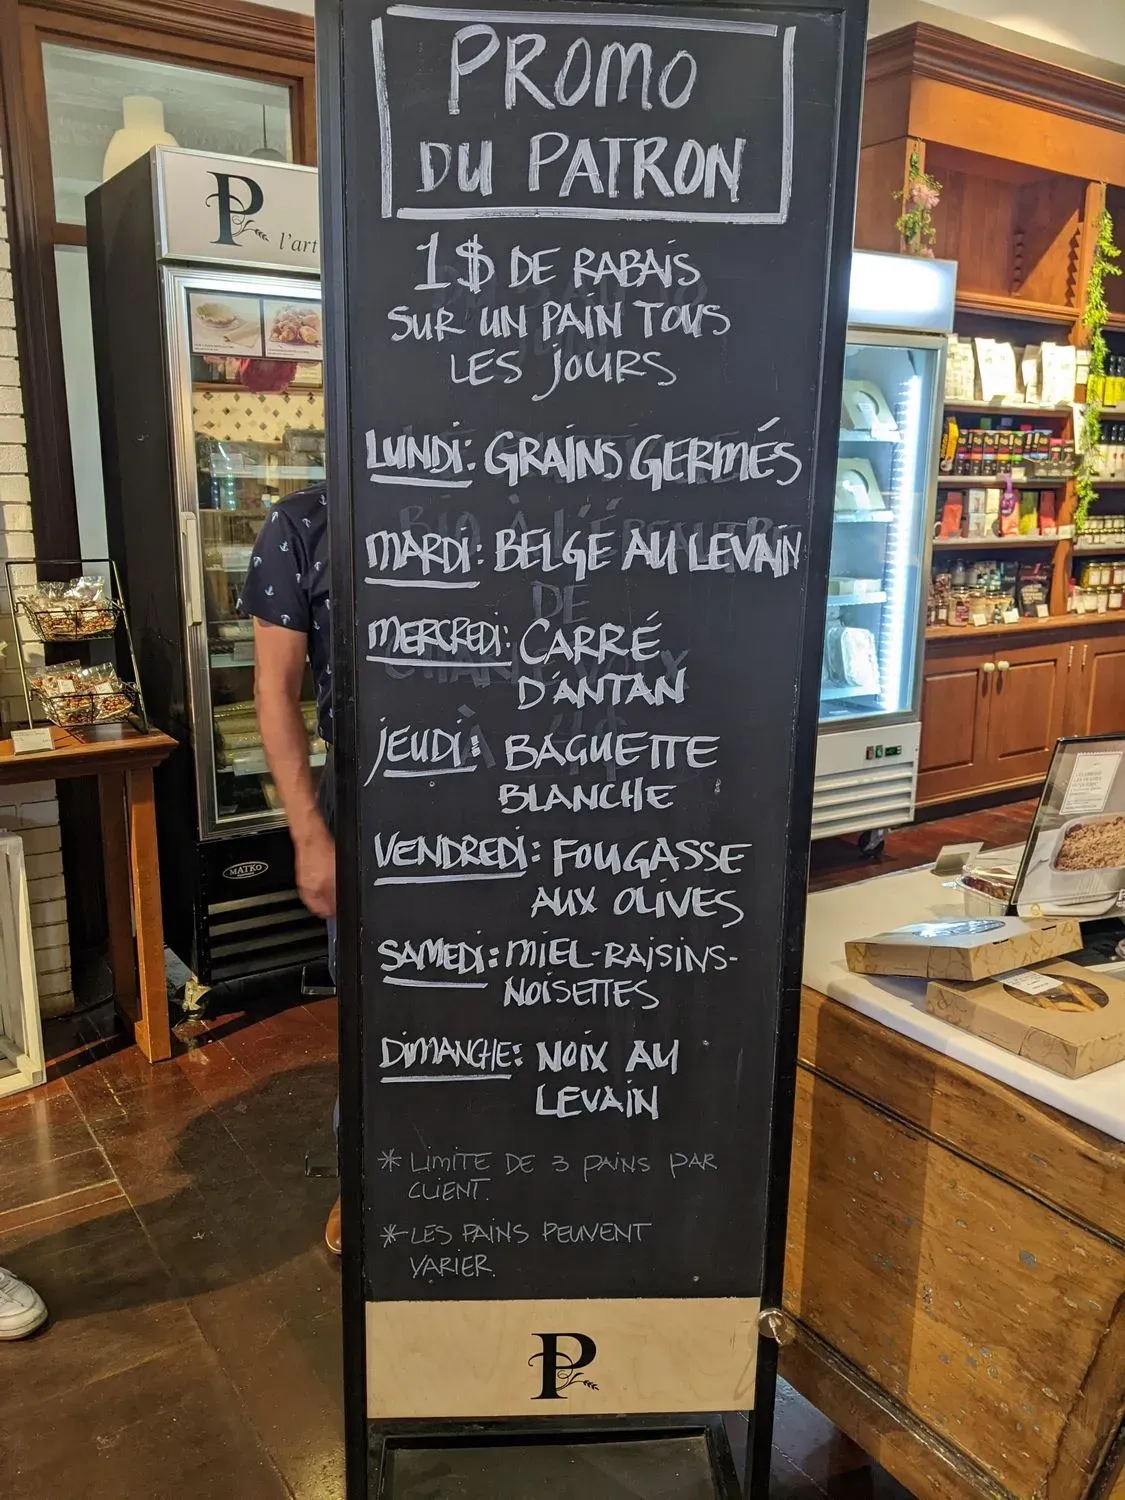 PROMO
DU PATRON
1$ DE RABAIS
SUR UN PAIN TOUS
LES JOURS
LUNDI: GRAINS GERMÉS
MARDI: BELGE AU LEVAIN
MERCREDI: CARRÉ
D'ANTAN
JEUDI: BAGUETTE
BLANCHE
VENDREDI: FOUGASSE
AUX OLIVES
SAMEDI: MIEL-RAISINS-
NOISETTES
DIMANCHE: NOIX AU
LEVAIN
* LIMITE DE 3 PAINS PAR
CLIENT.
* LES PAINS PEUVENT
VARIER.
P
P
l'art
MATKO